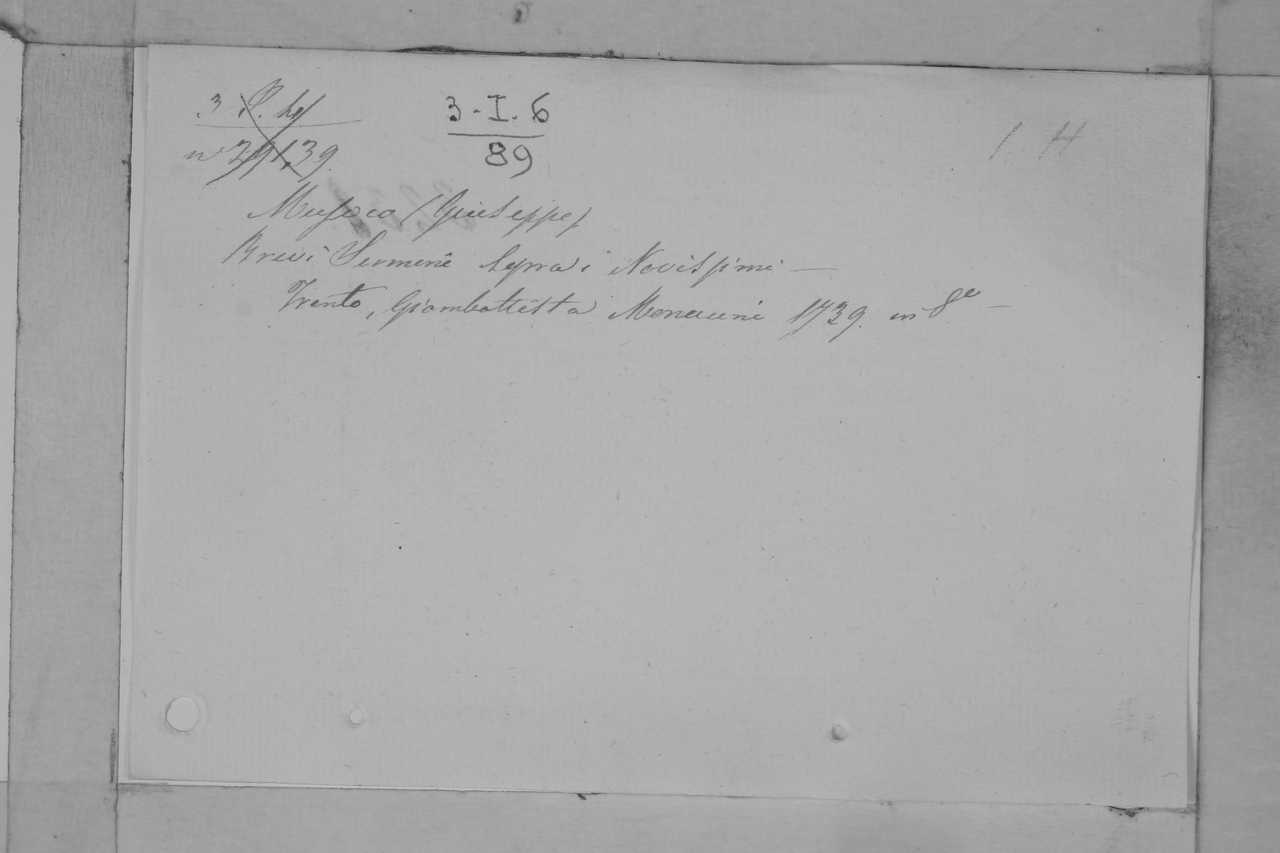 3 3-I.6 1 H
89
Musocco (Giuseppe)
Brevi Sermoni sopra i Novissimi —
Trento, Giambattista Monauni 1739. in 8º —